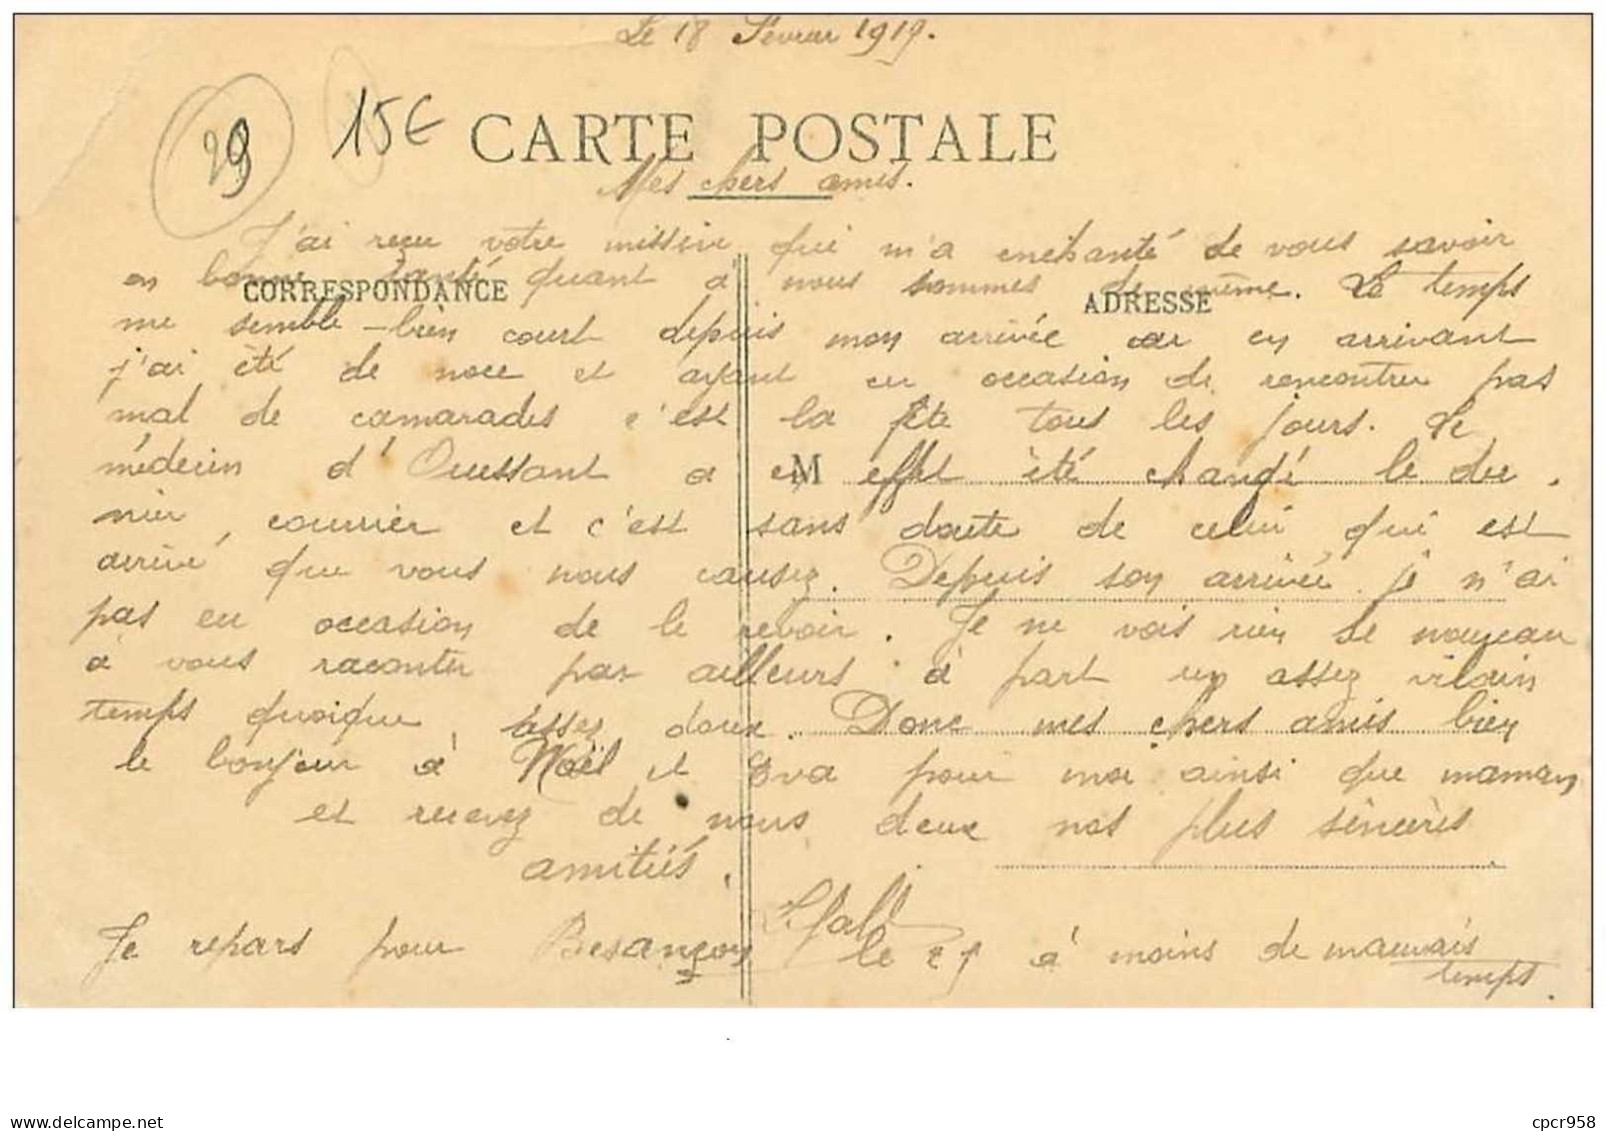 Le 18 Février 1919.
29
15€
CARTE POSTALE
Mes chers amis.
J'ai reçu votre missive qui m'a enchanté de vous savoir
en bonne santé quant à nous sommes de même. Le temps
CORRESPONDANCE
ADRESSE
me semble bien court depuis mon arrivée car en arrivant
j'ai été de noce et ayant eu occasion de rencontrer pas
mal de camarades c'est la fête tous les jours. Le
médecin d'Ouessant a en effet été changé le der
M
nier courrier et c'est sans doute de celui qui est
arrivé que vous nous causez. Depuis son arrivée je n'ai
pas eu occasion de le revoir. Je ne vois rien de nouveau
à vous raconter par ailleurs à part un assez vilain
temps quoique assez doux. Donc mes chers amis bien
le bonjour à Noël et Eva pour moi ainsi que maman
et recevez de nous deux nos plus sincères
amitiés.
Je repars pour Besançon le à moins de mauvais
temps.
cpcr958